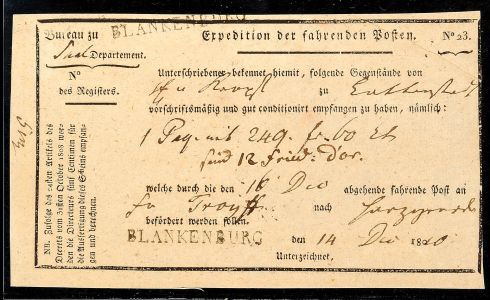 BLANKENBURG
Bureau zu
Departement.
Expedition der fahrenden Posten.
No 23.
No
des Registers.
NB. Zufolge des 24sten Artikels des
Decrets vom 31sten October 1808 wer-
den die Directeurs fünf Centimen für
die Ausfertigung dieses Scheins empfan-
gen und berechnen.
Unterschriebener bekennet hiemit, folgende Gegenstände von
zu
vorschriftsmäßig und gut conditionirt empfangen zu haben, nämlich:
1 Paq. mit 249. fr. 60 Ct
sind 12 Fried: d'or.
welche durch die den 16 Dec abgehende fahrende Post an
nach
befördert werden sollen.
BLANKENBURG den 14 Dec 1810
Unterzeichnet,